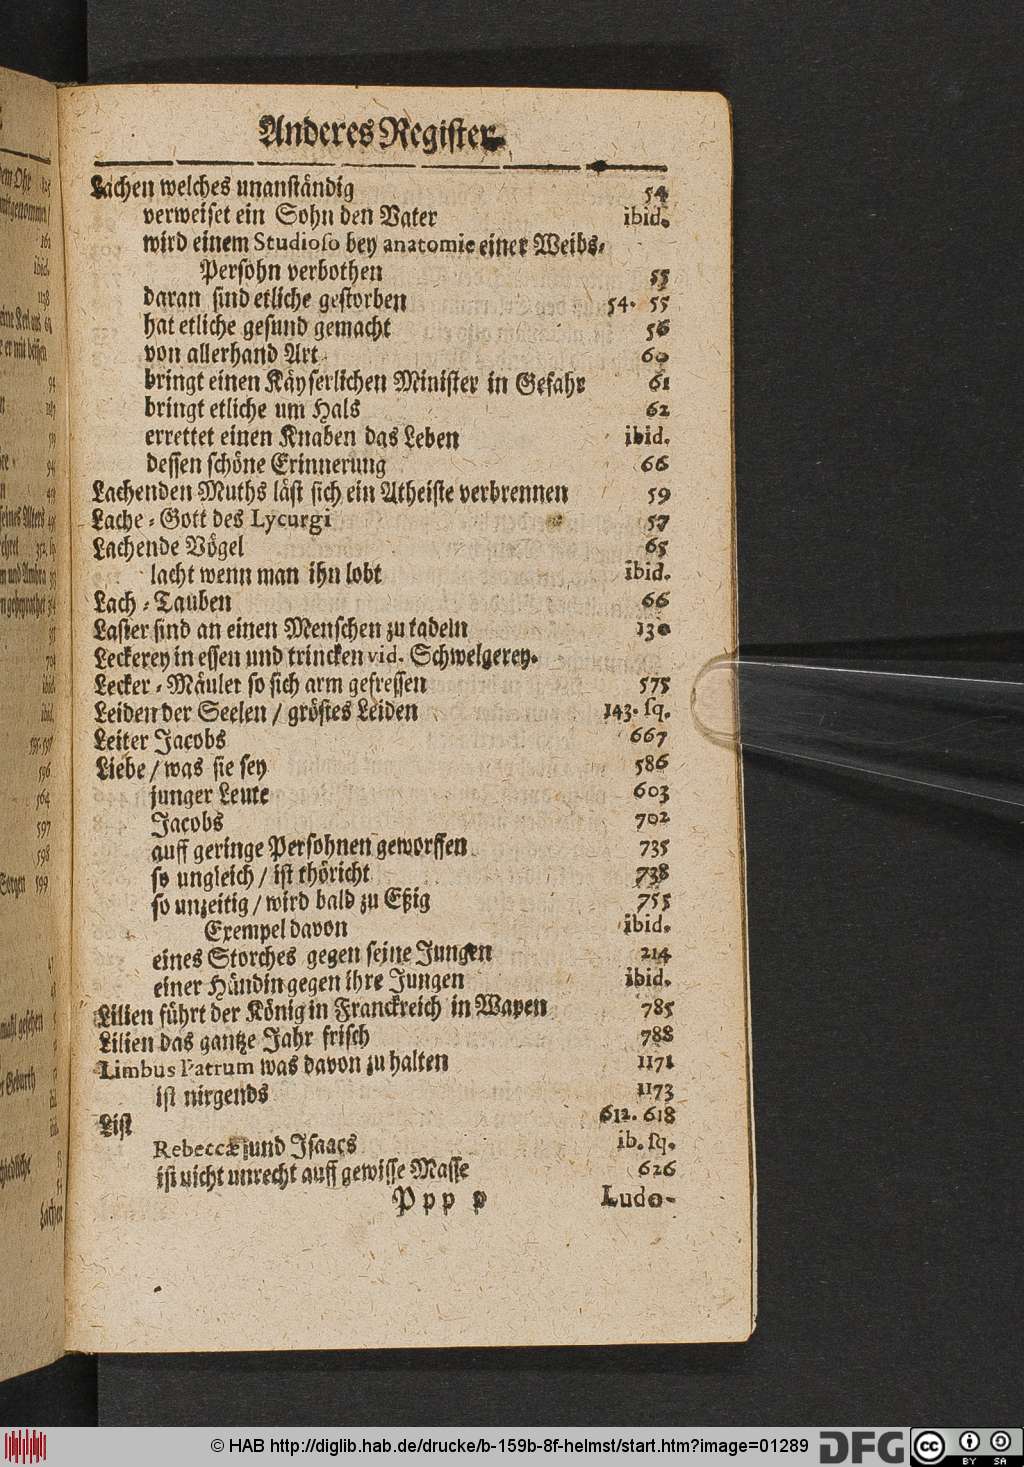 Anderes Register.
Lachen welches unanständig 54
verweiset ein Sohn den Vater ibid.
wird einem Studioso bey anatomie einer Weibs-
Persohn verbothen 55
daran sind etliche gestorben 54. 55
hat etliche gesund gemacht 56
von allerhand Art 60
bringt einen Käyserlichen Minister in Gefahr 61
bringt etliche um Hals 62
errettet einen Knaben das Leben ibid.
dessen schöne Erinnerung 66
Lachenden Muths läst sich ein Atheiste verbrennen 59
Lache-Gott des Lycurgi 57
Lachende Vögel 65
lacht wenn man ihn lobt ibid.
Lach-Tauben 66
Laster sind an einen Menschen zu tadeln 130
Leckerey in essen und trincken vid. Schwelgerey.
Lecker-Mäuler so sich arm gefressen 575
Leiden der Seelen / gröstes Leiden 143. sq.
Leiter Jacobs 667
Liebe / was sie sey 586
junger Leute 603
Jacobs 702
auff geringe Persohnen geworffen 735
so ungleich / ist thöricht 738
so unzeitig / wird bald zu Eßig 755
Exempel davon ibid.
eines Storches gegen seine Jungen 214
einer Hündin gegen ihre Jungen ibid.
Lilien führt der König in Franckreich in Wapen 785
Lilien das gantze Jahr frisch 788
Limbus Patrum was davon zu halten 1171
ist nirgends 1173
List 612. 618
Rebeccæ und Isaacs ib. sq.
ist nicht unrecht auff gewisse Masse 626
Pppp Ludo-
© HAB http://diglib.hab.de/drucke/b-159b-8f-helmst/start.htm?image=01289
DFG
cc BY SA